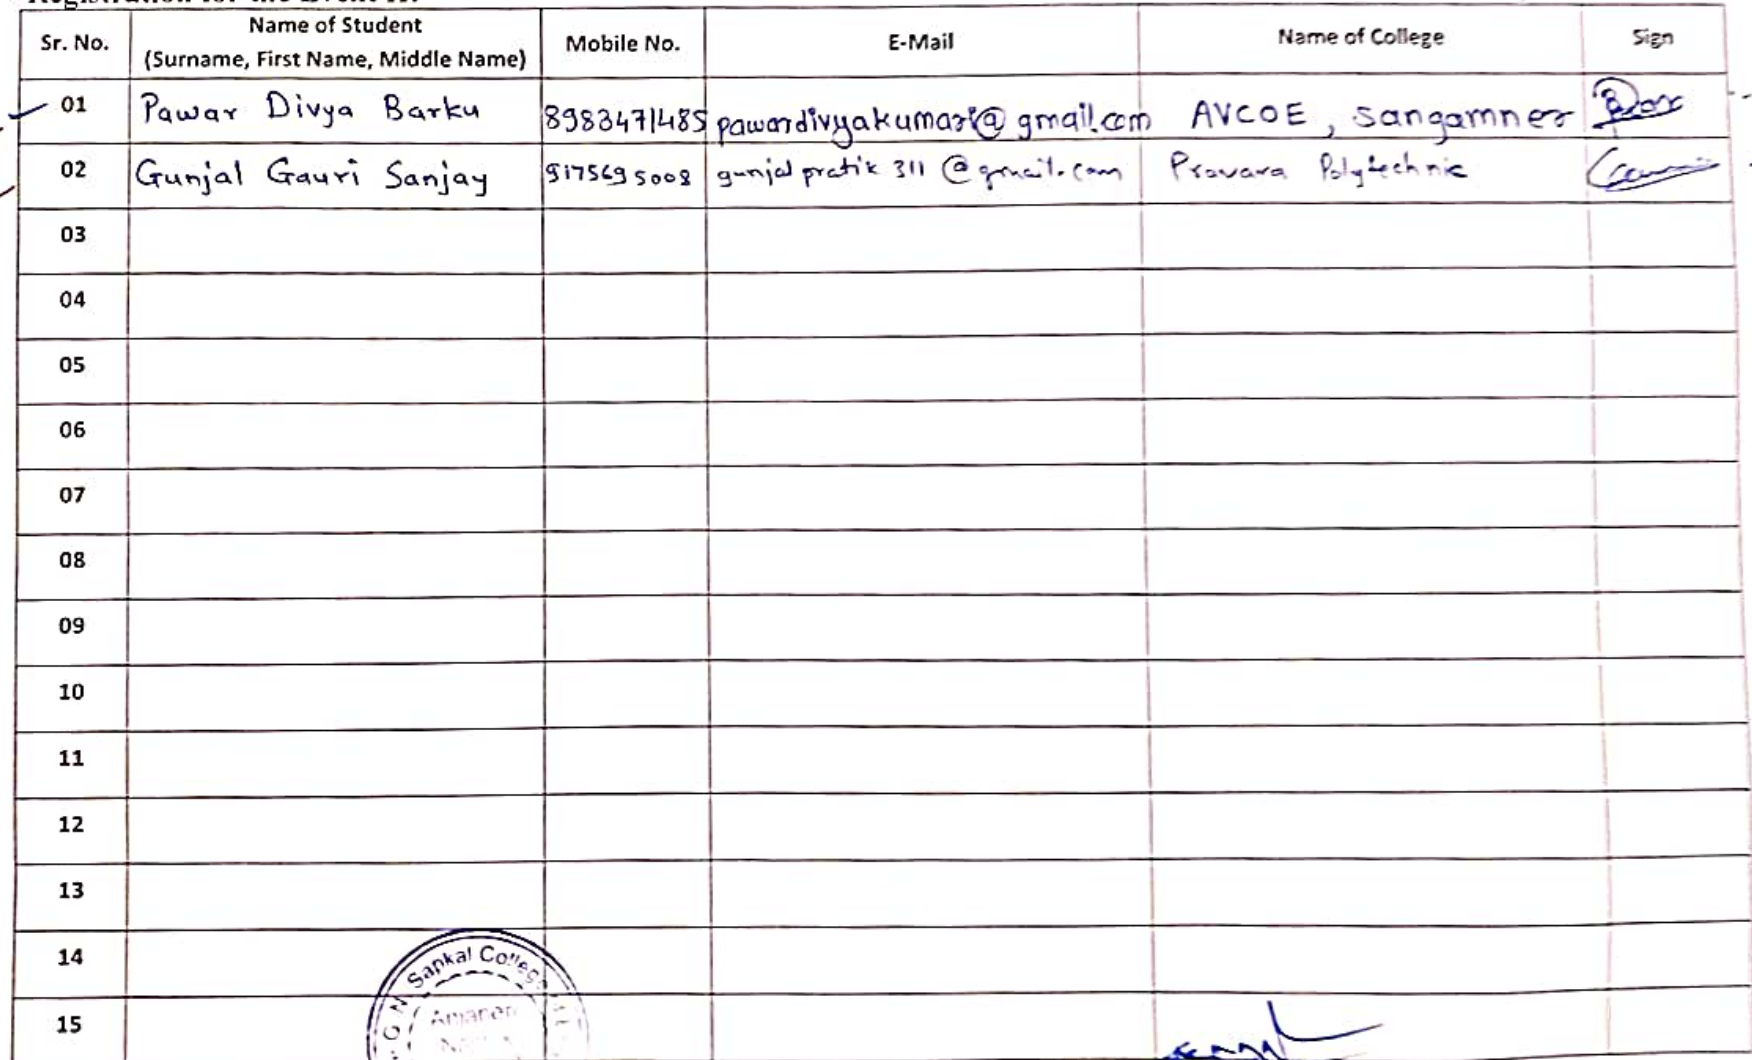 Registration for the Event
Sr. No. Name of Student (Surname, First Name, Middle Name) Mobile No. E-Mail Name of College Sign
01 Pawar Divya Barku 8983471485 pawardivyakumari@gmail.com AVCOE, sangamner
02 Gunjal Gauri Sanjay 9175695008 gunjalpratik311@gmail.com Pravara Polytechnic
03
04
05
06
07
08
09
10
11
12
13
14
15
G N Sapkal College
Anjaneri